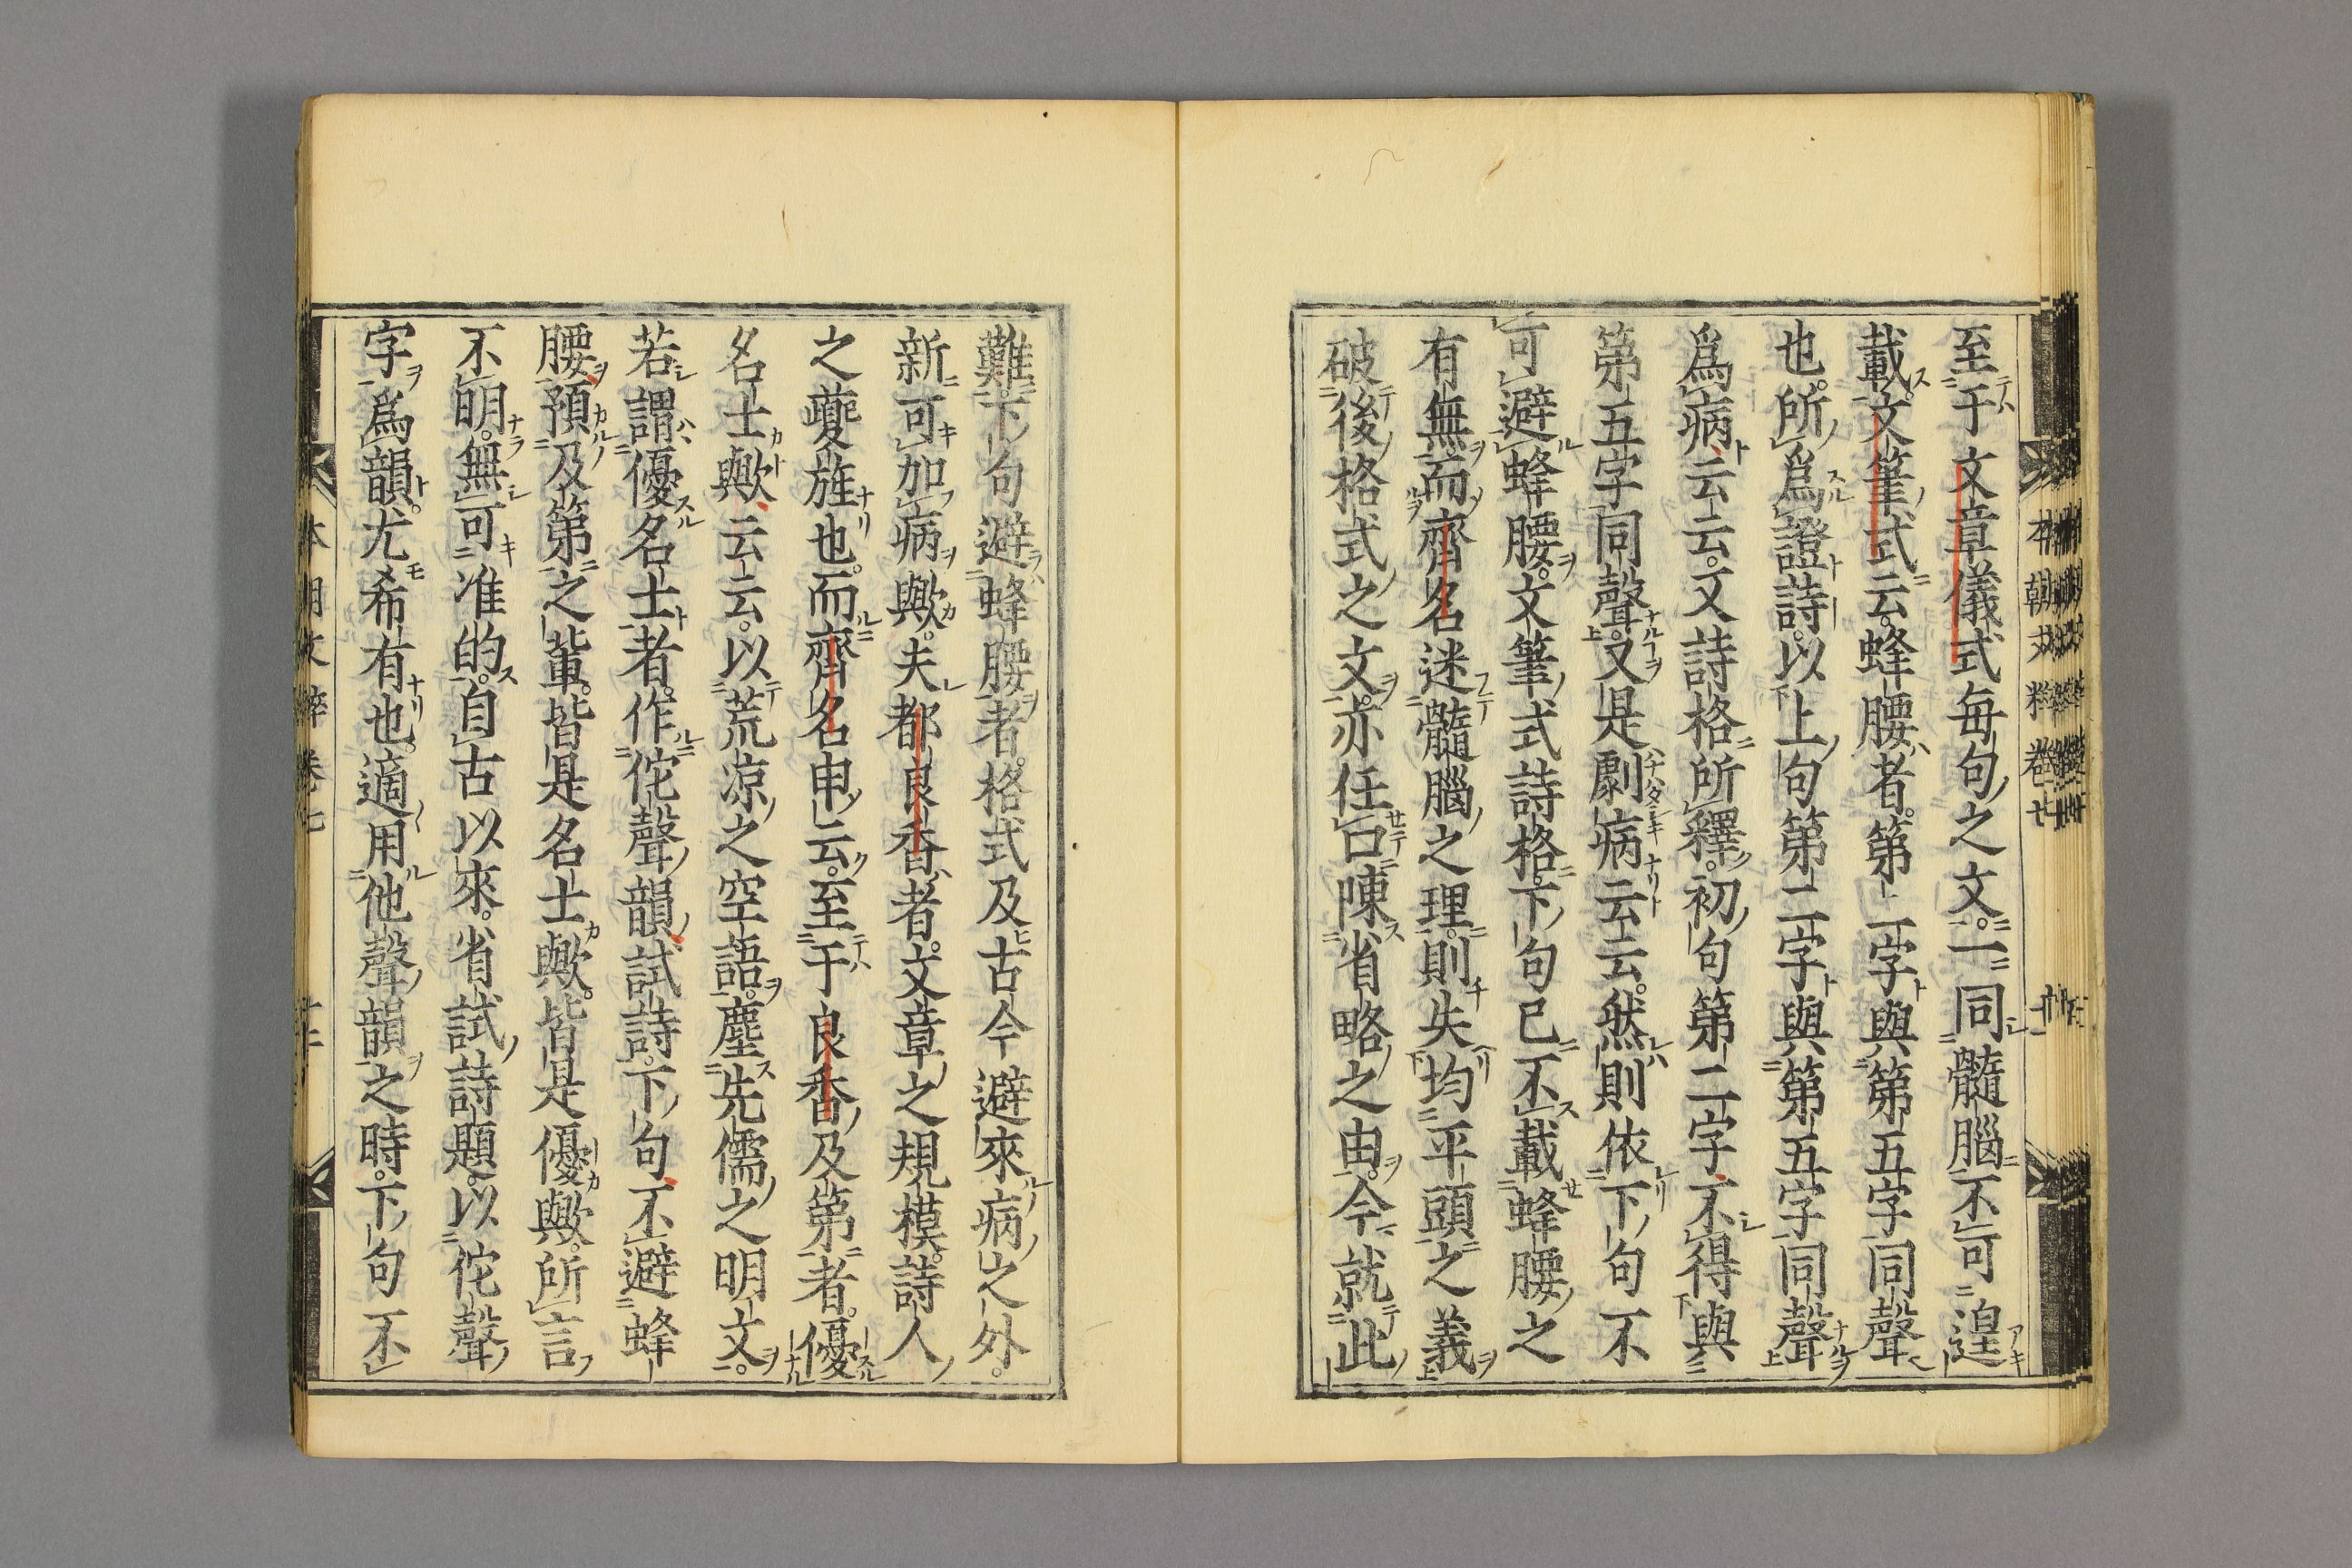 至于文章儀式毎句之文。一同髓腦不可遑
載。文筆式云。蜂腰者。第二字與第五字同聲
也。所爲證詩。以上句第二字與第五字同聲
爲病云云。又詩格所釋。初句第二字不得與
第五字同聲。又是劇病云云。然則依下句不
可避蜂腰。文筆式詩格。下句已不載蜂腰之
有無。而齊名迷髓腦之理。則失均平頭之義
破後格式之文。亦任口陳省略之由。今就此
難。下句避蜂腰者。格式及古今避來病之外。
新可加病歟。夫都良香者。文章之規模。詩人
之夔旌也。而齊名申云。至于良香及第者。優
名士歟云云。以荒凉之空語。塵先儒之明文。
若謂優名士者。作侘聲韻試詩。下句不避蜂
腰預及第之輩。皆是名士歟。皆是優歟。所言
不明。無可准的。自古以來。省試詩題。以侘聲
字爲韻。尤希有也。適用他聲韻之時。下句不
本朝文粹卷七